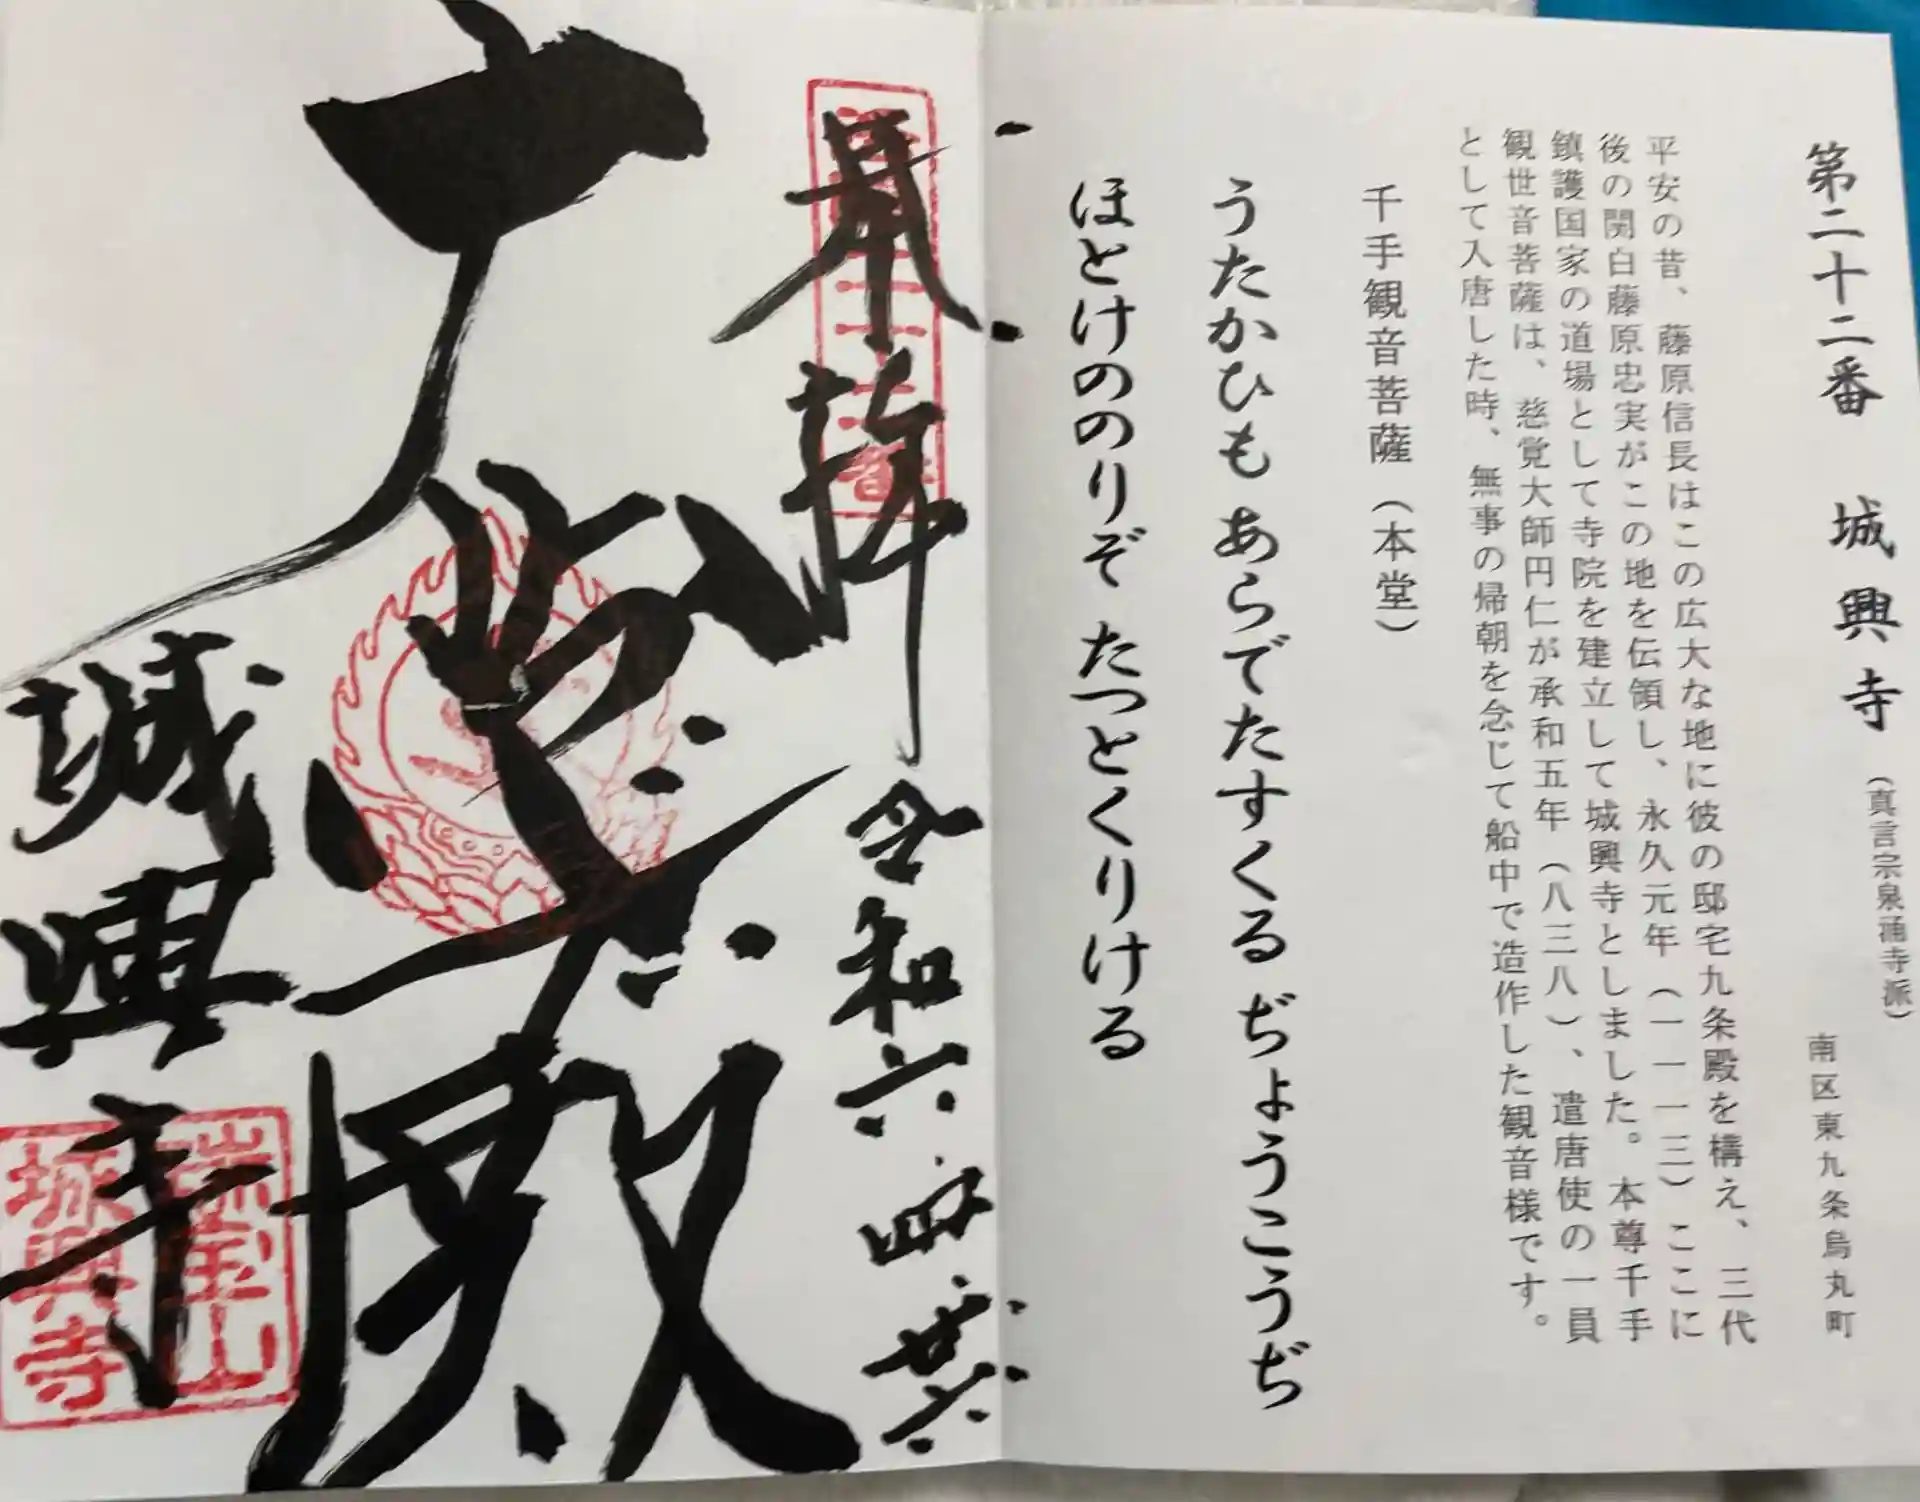 第二十二番 城興寺 (真言宗泉涌寺派)
南区東九条烏丸町
平安の昔、藤原信長はこの広大な地に彼の邸宅九条殿を構え、三代
後の関白藤原忠実がこの地を伝領し、永久元年(一一一三)ここに
鎮護国家の道場として寺院を建立して城興寺としました。本尊千手
観世音菩薩は、慈覚大師円仁が承和五年(八三八)、遣唐使の一員
として入唐した時、無事の帰朝を念じて船中で造作した観音様です。
千手観音菩薩(本堂)
うたかひも あらでたすくる ぢょうこうぢ
ほとけののりぞ たつとくりける
奉拝
令和六
四
廿六
大悲殿
城興寺
瑞宝山
城興寺